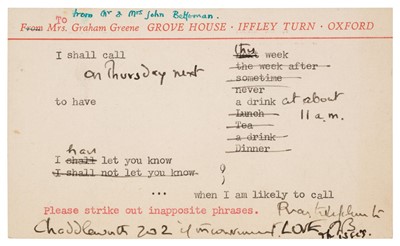 from Mr & Mrs John Betjeman.
TO
From Mrs. Graham Greene GROVE HOUSE · IFFLEY TURN · OXFORD
I shall call this week
on Thursday next the week after
sometime
never
to have a drink at about
Lunch 11 a.m.
Tea
a drink
Dinner
have
I shall let you know
I shall not let you know
... when I am likely to call
Please strike out inapposite phrases.
Chaddleworth 202 if inconvenient LOVE JB